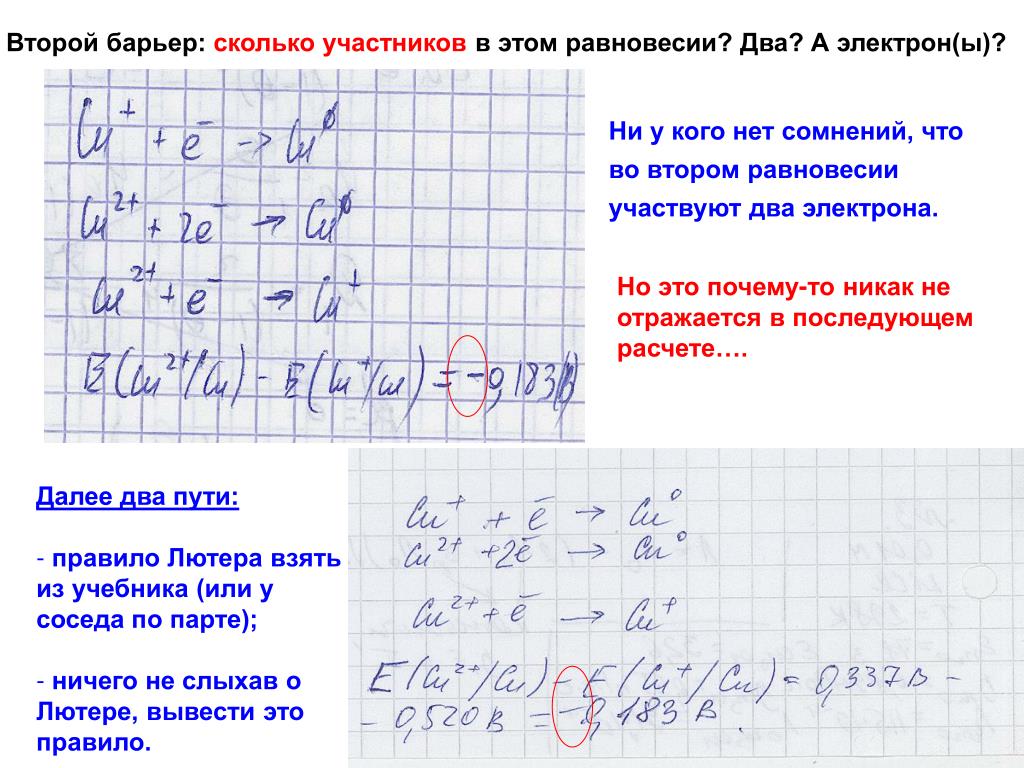 Второй барьер: сколько участников в этом равновесии? Два? А электрон(ы)?
Cu⁺ + ē -> Cu⁰
Cu²⁺ + 2ē → Cu⁰
Cu²⁺ + ē → Cu⁺
E(Cu²⁺/Cu) - E(Cu⁺/Cu) = -0,183(В)
Ни у кого нет сомнений, что
во втором равновесии
участвуют два электрона.
Но это почему-то никак не
отражается в последующем
расчете….
Далее два пути:
- правило Лютера взять
из учебника (или у
соседа по парте);
- ничего не слыхав о
Лютере, вывести это
правило.
Cu⁺ + ē → Cu⁰
Cu²⁺ + 2ē → Cu⁰
Cu²⁺ + ē → Cu⁺
E(Cu²⁺/Cu) - E(Cu⁺/Cu) = 0,337В -
- 0,520В = -0,183 В.